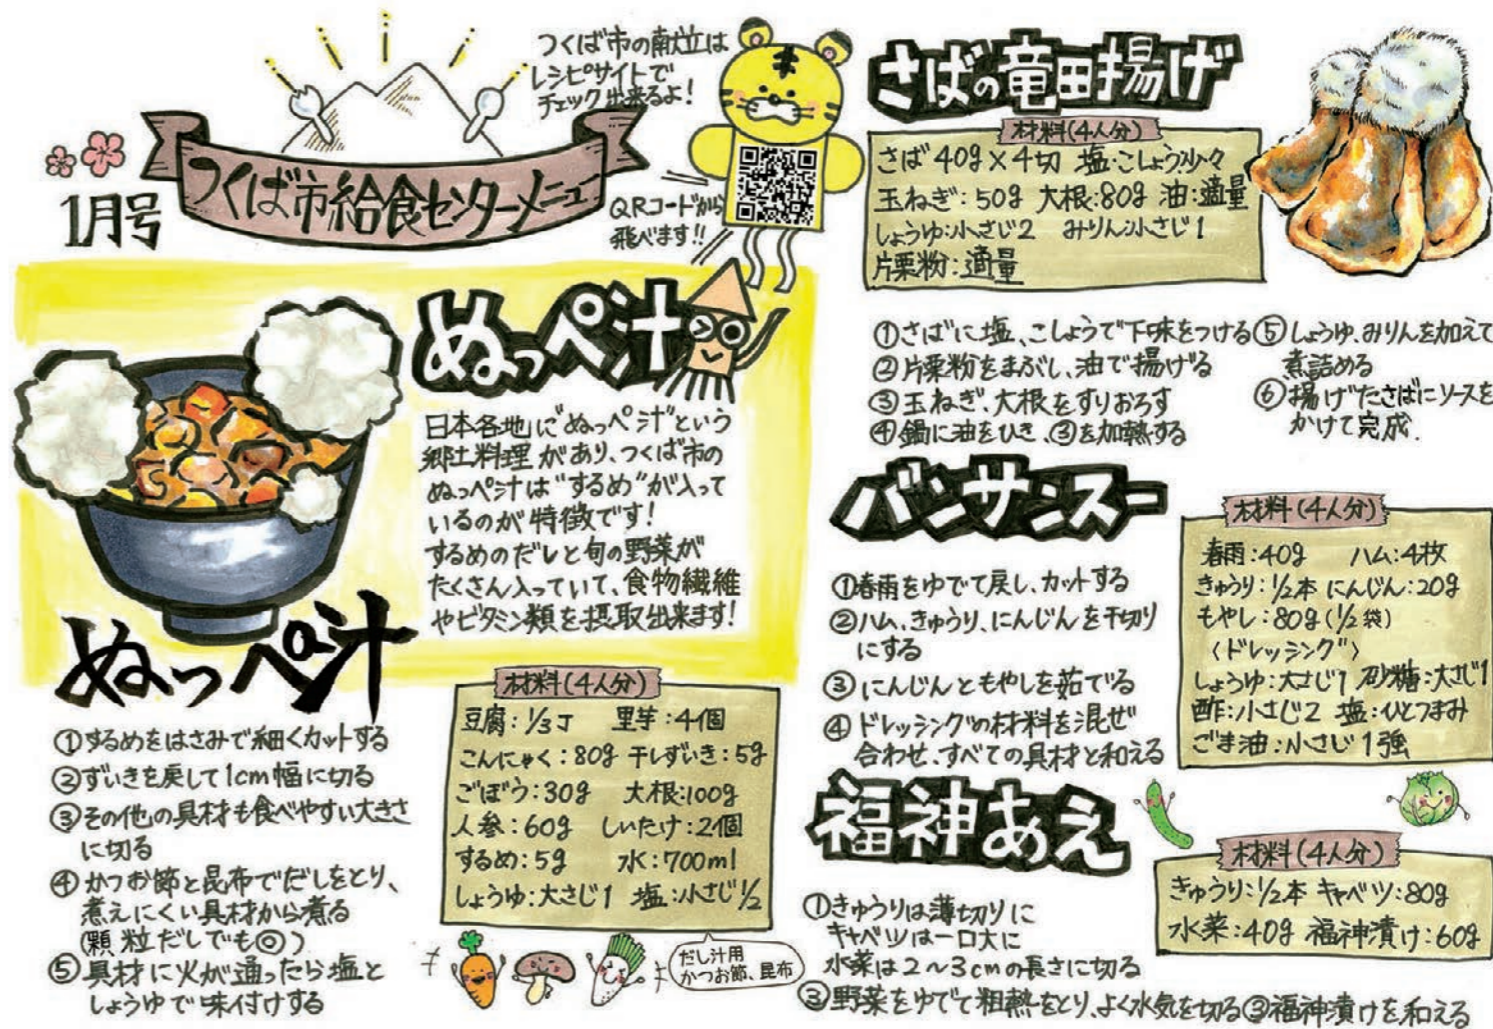 つくば市の献立は
レシピサイトで
チェック出来るよ!
1月号
つくば市給食センターメニュー
QRコードから
飛べます!!
ぬっぺ汁
日本各地に"ぬっぺ汁"という
郷土料理があり、つくば市の
ぬっぺ汁は"するめ"が入って
いるのが特徴です!
するめのだしと旬の野菜が
たくさん入っていて、食物繊維
やビタミン類を摂取出来ます!
ぬっぺ汁
①するめをはさみで細くカットする
②ずいきを戻して1cm幅に切る
③その他の具材も食べやすい大きさ
に切る
④かつお節と昆布でだしをとり、
煮えにくい具材から煮る
(顆粒だしでも◎)
⑤具材に火が通ったら塩と
しょうゆで味付けする
材料(4人分)
豆腐:1/3丁 里芋:4個
こんにゃく:80g 干しずいき:5g
ごぼう:30g 大根:100g
人参:60g しいたけ:2個
するめ:5g 水:700ml
しょうゆ:大さじ1 塩:小さじ1/2
だし汁用
かつお節、昆布
さばの竜田揚げ
材料(4人分)
さば40g×4切 塩・こしょう少々
玉ねぎ:50g 大根:80g 油:適量
しょうゆ:小さじ2 みりん:小さじ1
片栗粉:適量
①さばに塩、こしょうで下味をつける
②片栗粉をまぶし、油で揚げる
③玉ねぎ、大根をすりおろす
④鍋に油をひき、③を加熱する
⑤しょうゆ、みりんを加えて
煮詰める
⑥揚げたさばにソースを
かけて完成.
バンサンスー
①春雨をゆでて戻し、カットする
②ハム、きゅうり、にんじんを千切り
にする
③にんじんともやしを茹でる
④ドレッシングの材料を混ぜ
合わせ、すべての具材と和える
材料(4人分)
春雨:40g ハム:4枚
きゅうり:1/2本 にんじん:20g
もやし:80g(1/2袋)
〈ドレッシング〉
しょうゆ:大さじ1 砂糖:大さじ1
酢:小さじ2 塩:ひとつまみ
ごま油:小さじ1強
福神あえ
①きゅうりは薄切りに
キャベツは一口大に
水菜は2~3cmの長さに切る
②野菜をゆでて粗熱をとり、よく水気を切る ③福神漬けを和える
材料(4人分)
きゅうり:1/2本 キャベツ:80g
水菜:40g 福神漬け:60g